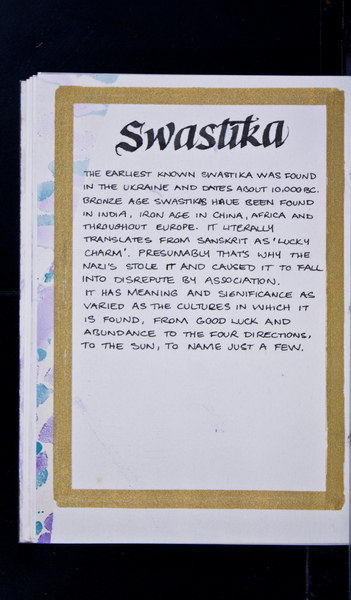 Swastika
THE EARLIEST KNOWN SWASTIKA WAS FOUND
IN THE UKRAINE AND DATES ABOUT 10,000 BC.
BRONZE AGE SWASTIKAS HAVE BEEN FOUND
IN INDIA, IRON AGE IN CHINA, AFRICA AND
THROUGHOUT EUROPE. IT LITERALLY
TRANSLATES FROM SANSKRIT AS 'LUCKY
CHARM'. PRESUMABLY THAT'S WHY THE
NAZI'S STOLE IT AND CAUSED IT TO FALL
INTO DISREPUTE BY ASSOCIATION.
IT HAS MEANING AND SIGNIFICANCE AS
VARIED AS THE CULTURES IN WHICH IT
IS FOUND, FROM GOOD LUCK AND
ABUNDANCE TO THE FOUR DIRECTIONS,
TO THE SUN, TO NAME JUST A FEW.